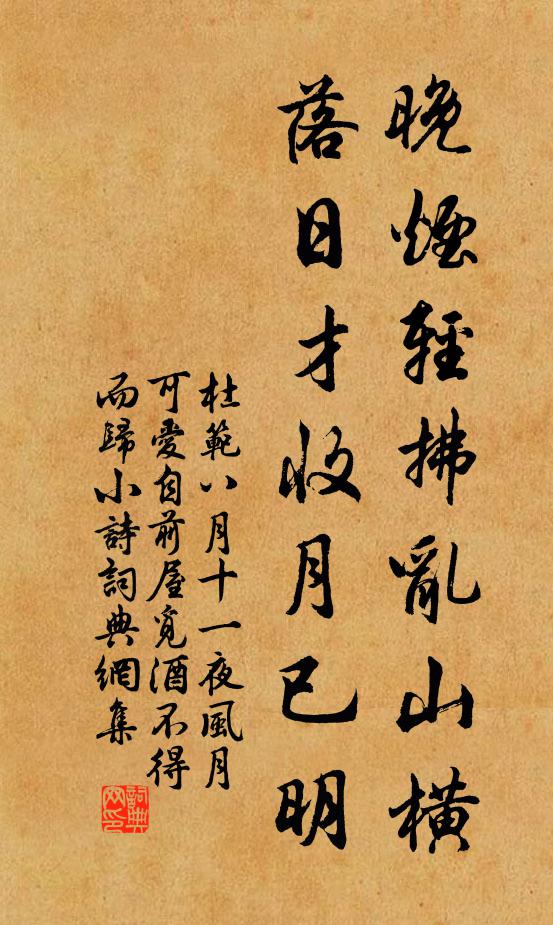 晚煙輕拂亂山橫
落日才收月已明
杜範八月十一夜風月
可愛自前屋覓酒不得
而歸小詩詞典網集
詞典网印